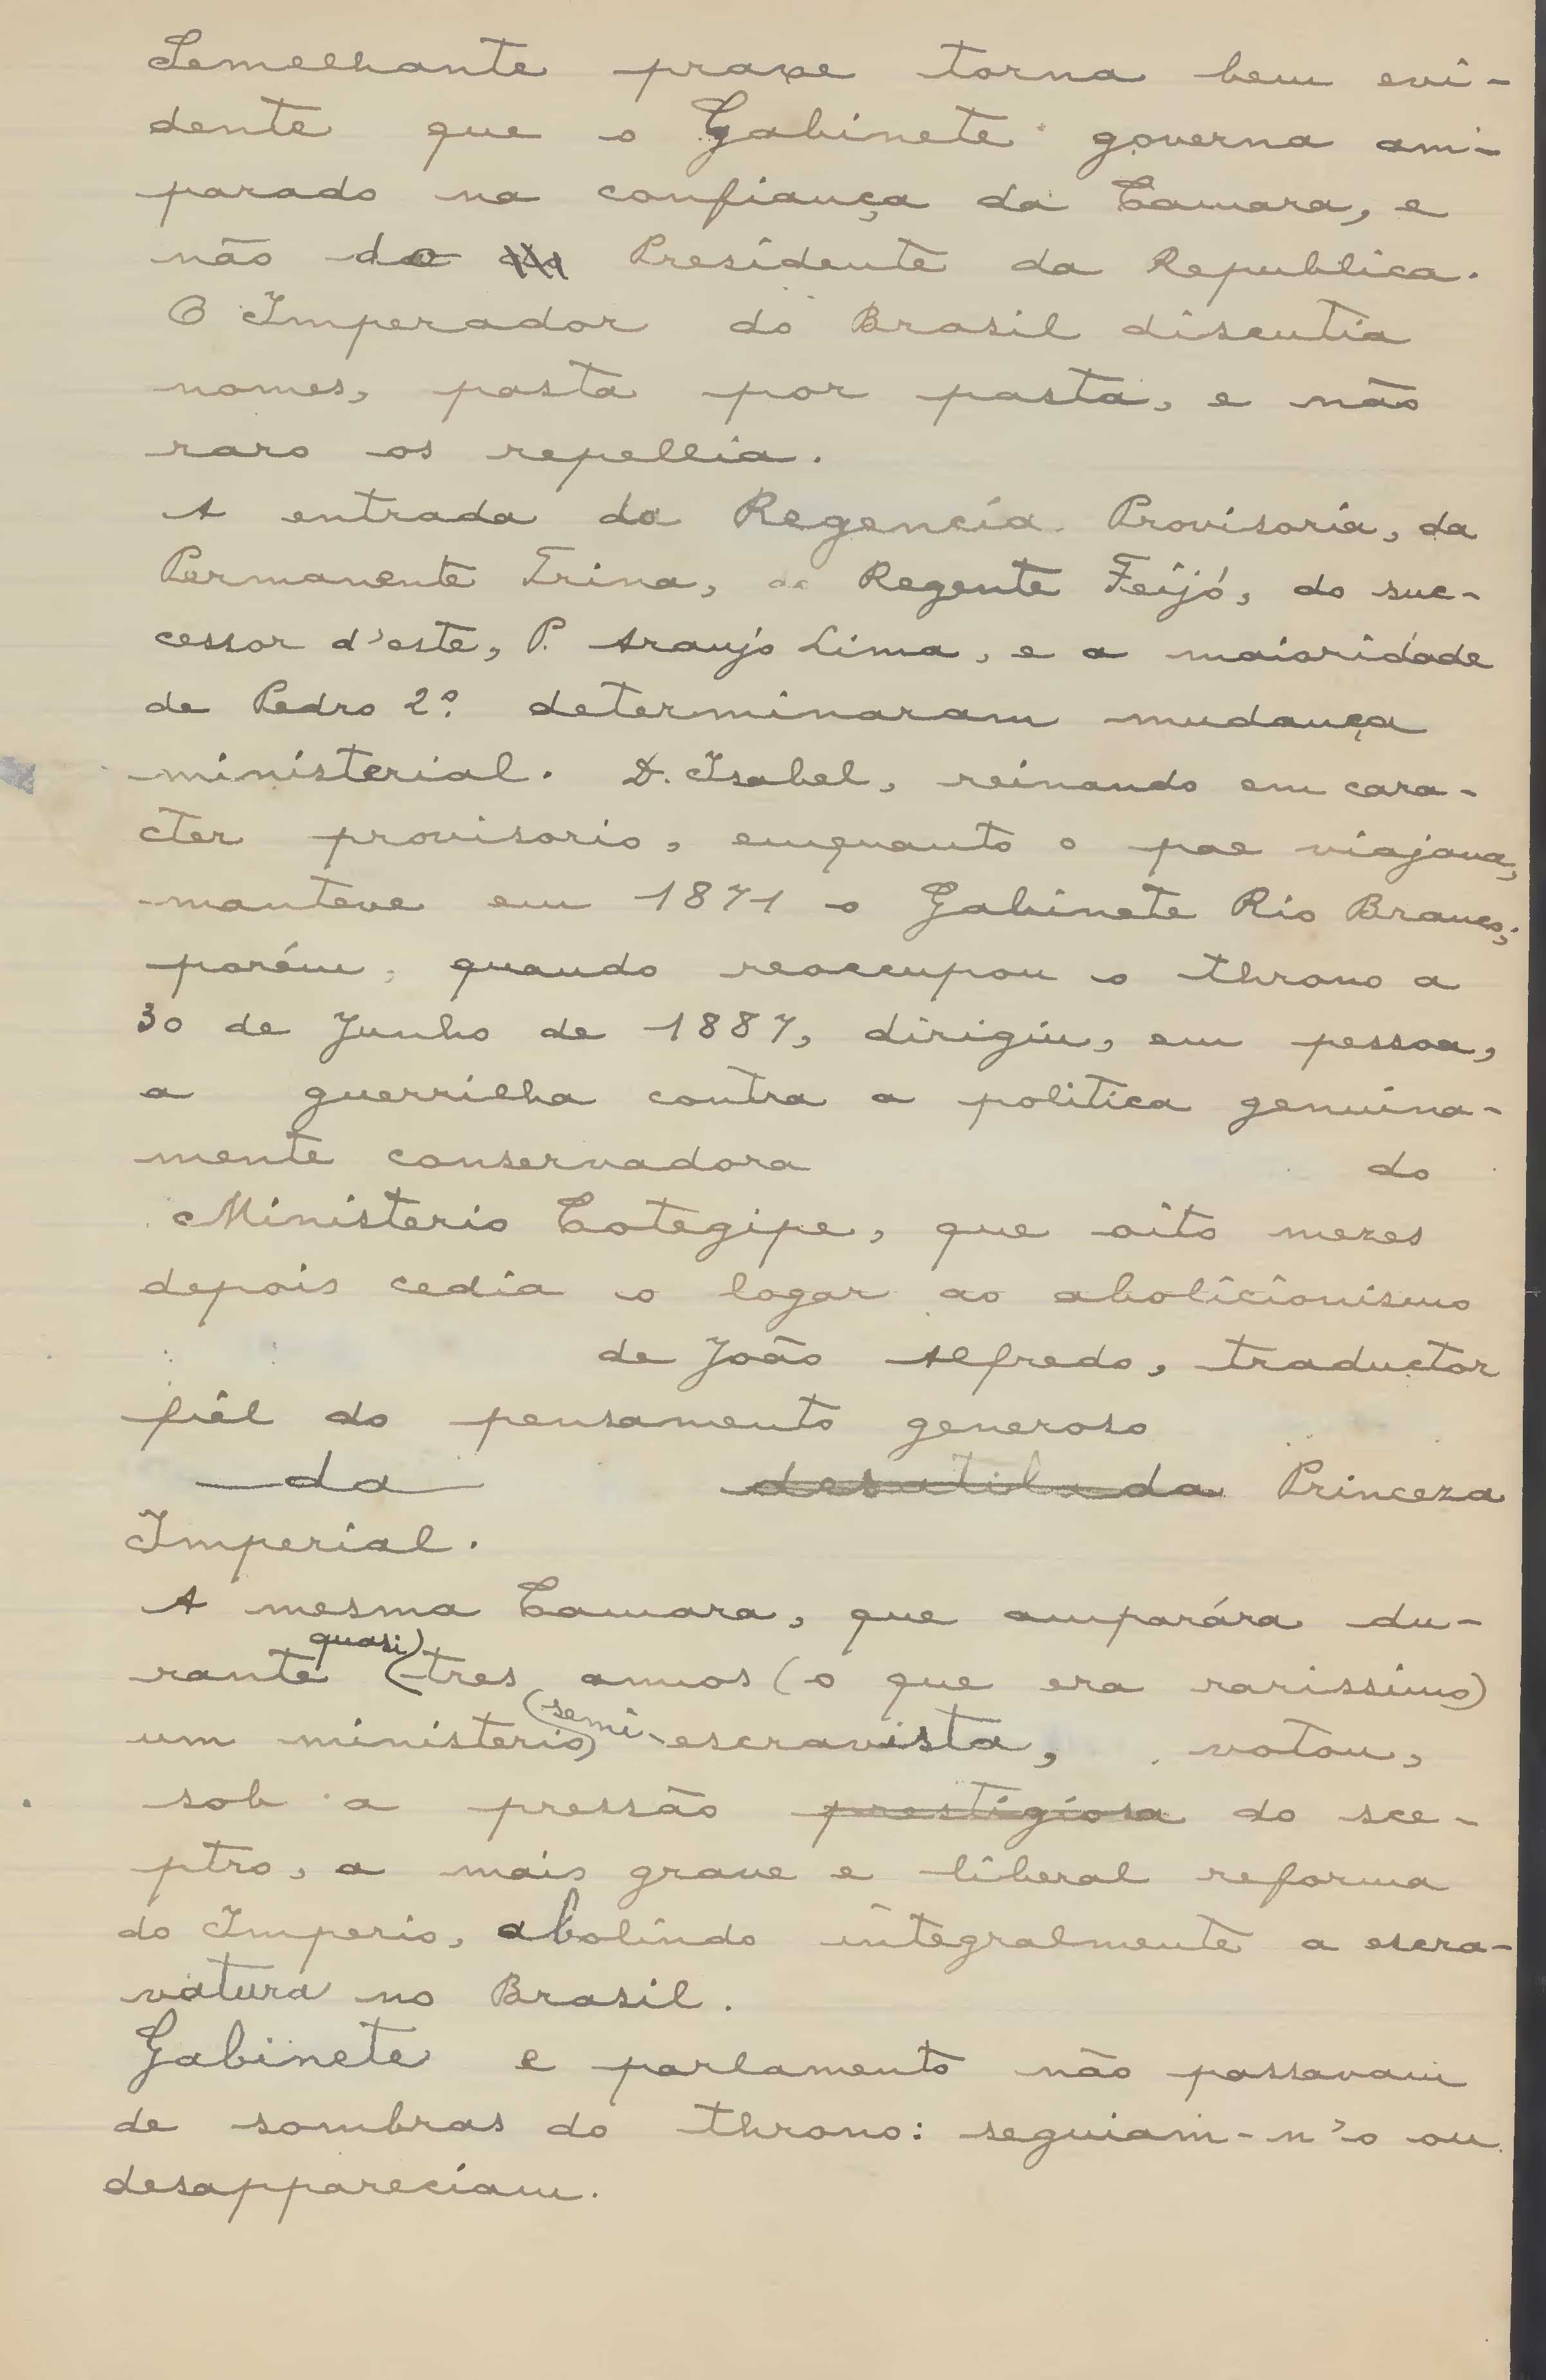 Semelhante praxe torna bem evi-
dente que o Gabinete governa am-
parado na confiança da Camara, e
não do Presidente da Republica.
O Imperador do Brasil discutia
nomes, pasta por pasta, e não
raro os repellia.
A entrada da Regencia Provisoria, da
Permanente Trina, do Regente Feijó, do suc-
cessor d'este, P. Araujo Lima, e a maioridade
de Pedro 2º determinaram mudança
ministerial. D. Isabel, reinando em cara-
cter provisorio, emquanto o pae viajava,
manteve em 1871 o Gabinete Rio Branco;
porém, quando reoccupou o throno a
30 de Junho de 1887, dirigiu, em pessoa,
a guerrilha contra a politica genuina-
mente conservadora do
Ministerio Cotegipe, que oito mezes
depois cedia o logar ao abolicionismo
de João Alfredo, traductor
fiél do pensamento generoso
da Princeza
Imperial.
A mesma Camara, que amparára du-
rante (quasi) tres annos (o que era rarissimo)
um ministerio (semi-escravista, votou,
sob a pressão prestigiosa do sce-
ptro, a mais grave e liberal reforma
do Imperio, abolindo integralmente a escra-
vatura no Brasil.
Gabinete e parlamento não passavam
de sombras do throno: seguiam-n'o ou
desappareciam.